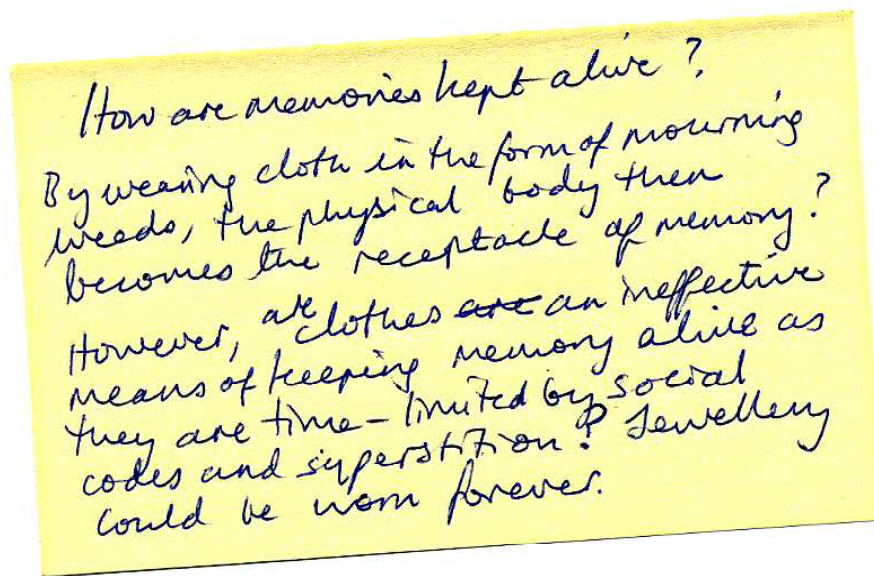 How are memories kept alive?
By wearing cloth in the form of mourning
weeds, the physical body then
becomes the receptacle of memory?
However, are clothes are an ineffective
means of keeping memory alive as
they are time-limited by social
codes and superstition? Jewellery
could be worn forever.